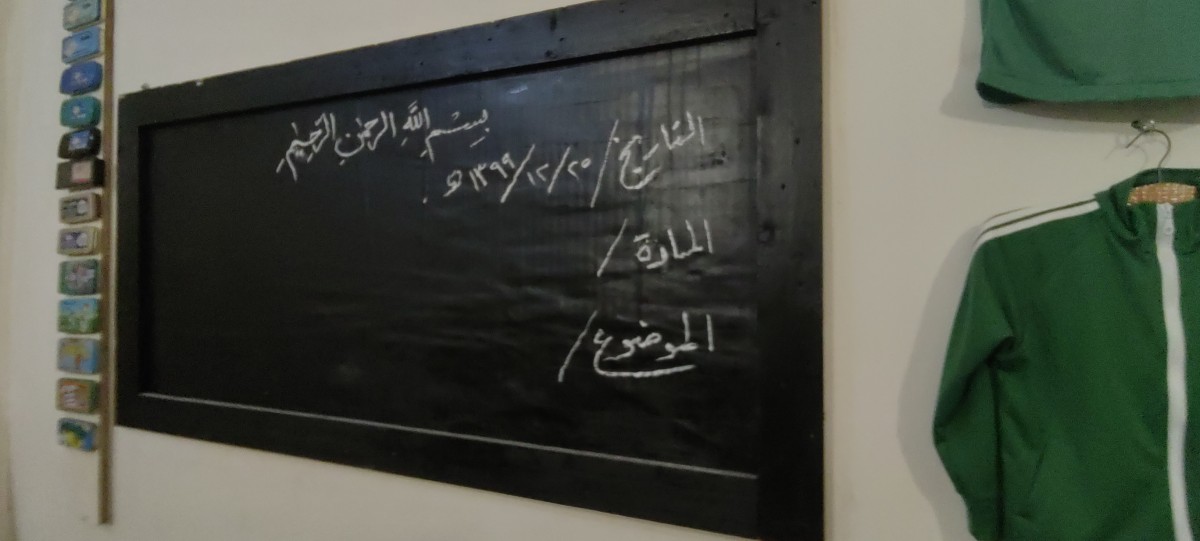 بِسْمِ اللَّهِ الرَّحْمٰنِ الرَّحِيْمِ
التاريخ / ٢٠ / ١٢ / ١٣٩٩ هـ
المادة /
الموضوع /